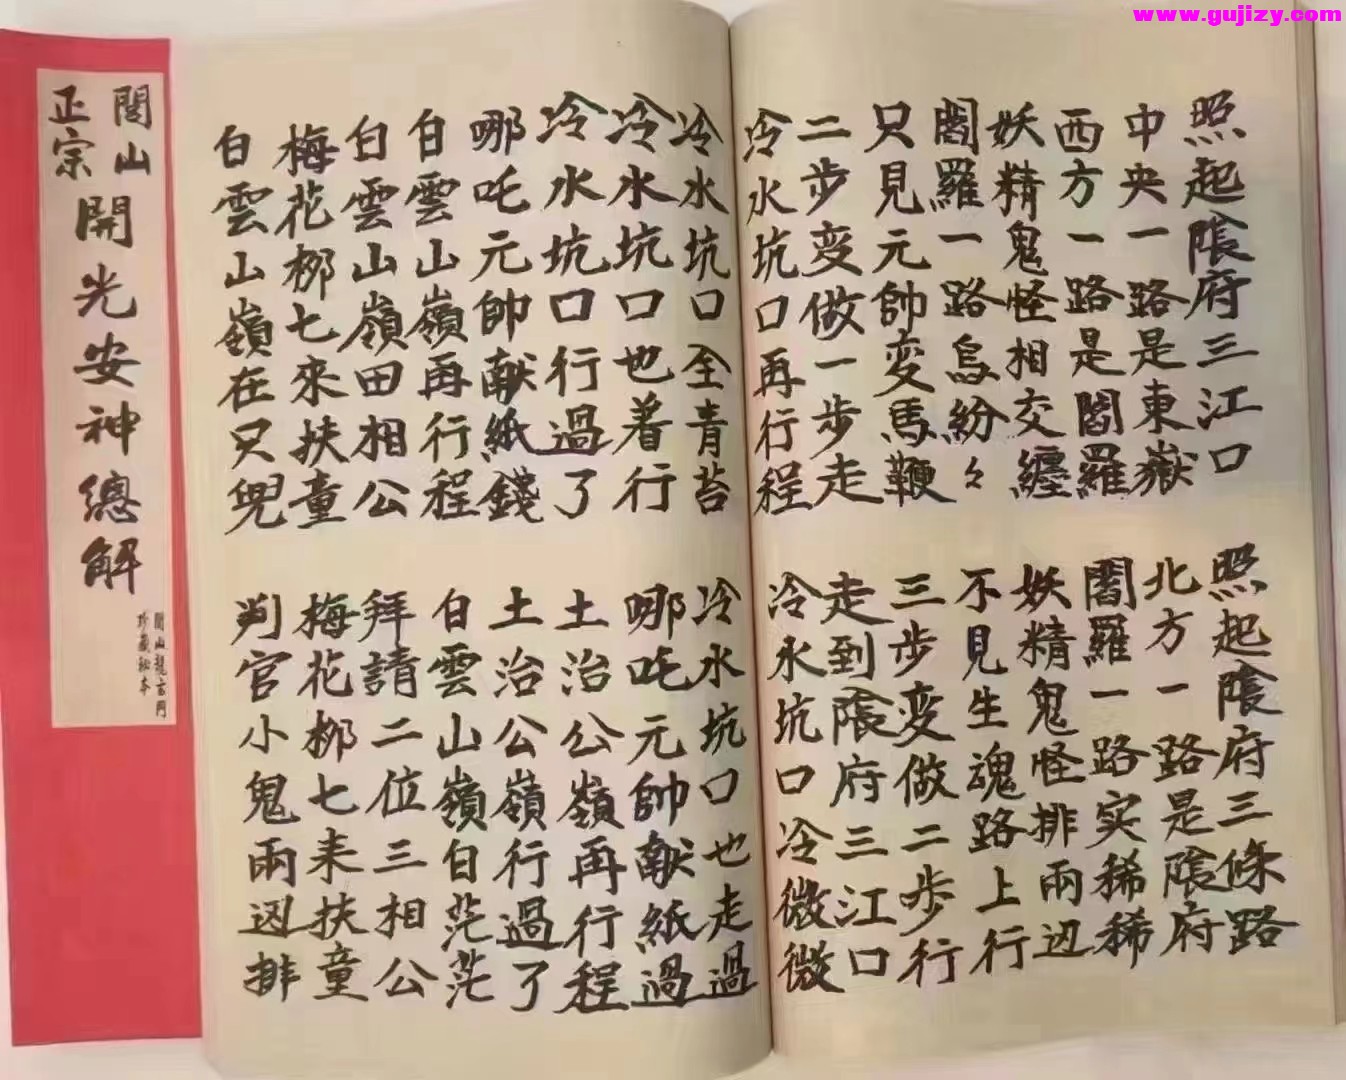 www.gujizy.com
閭山
正宗
開光安神總解
閭山龍玄門
珍藏秘本
照起陰府三江口
照起陰府三條路
中央一路是東嶽
北方一路是陰府
西方一路是閻羅
閻羅一路实稀稀
妖精鬼怪相交纏
妖精鬼怪排兩边
閻羅一路烏紛々
不見生魂路上行
只見元帥变馬鞭
三步变做二步行
二步变做一步走
走到陰府三江口
冷水坑口再行程
冷水坑口冷微微
冷水坑口全青苔
冷水坑口也走過
冷水坑口也着行
哪吒元帥献紙過
冷水坑口行過了
土治公嶺再行程
哪吒元帥献紙錢
土治公嶺行過了
白雲山嶺再行程
白雲山嶺白茫茫
白雲山嶺田相公
拜請二位三相公
梅花梛七來扶童
梅花梛七来扶童
白雲山嶺在只兜
判官小鬼兩边排